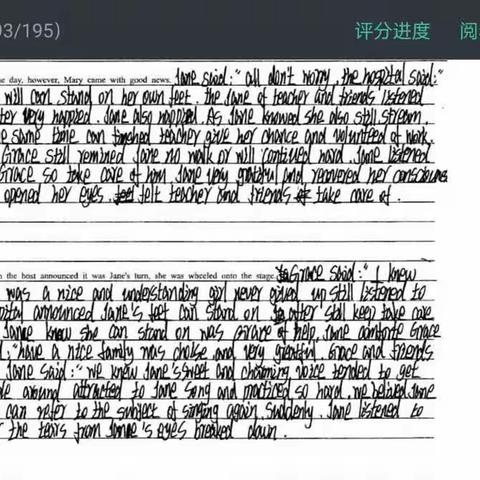 93/195) 评分进度 阅
e day, however, Mary came with good news. Jane said:" all don't worry, the hospital said:"
will can stand on her own feet. the Jane of teacher and friends listened
ter very happied. Jane also happied. As Jane knowed she also still stream.
e same time can teacher give her chance and volunteed of work.
Grace still remined Jane no walk or will contiued hard. Jane listened
Grace so take care of him. Jane very grateful and recovered her conscious
opened her eyes. felt teacher and friends take care of.
n the host announced it was Jane's turn, she was wheeled onto the stage. Grace said:" I knew
was a nice and understanding girl never gived up still listened to
pital announced Jane's feet can stand on after still keep take care
Jane know she can stand on was Grace of help. Jane comforte Grace
d:"have a nice family was choise and very grateful. Grace and friends
Jane said:" we knew Jane's sweet and charming voice tended to get
le around attracted to Jane song and practiced so hard. we belived Jane
can refer to the subject of singing again. Suddenly. Jane listened to
r the tears from Jane's eyes breaked down.